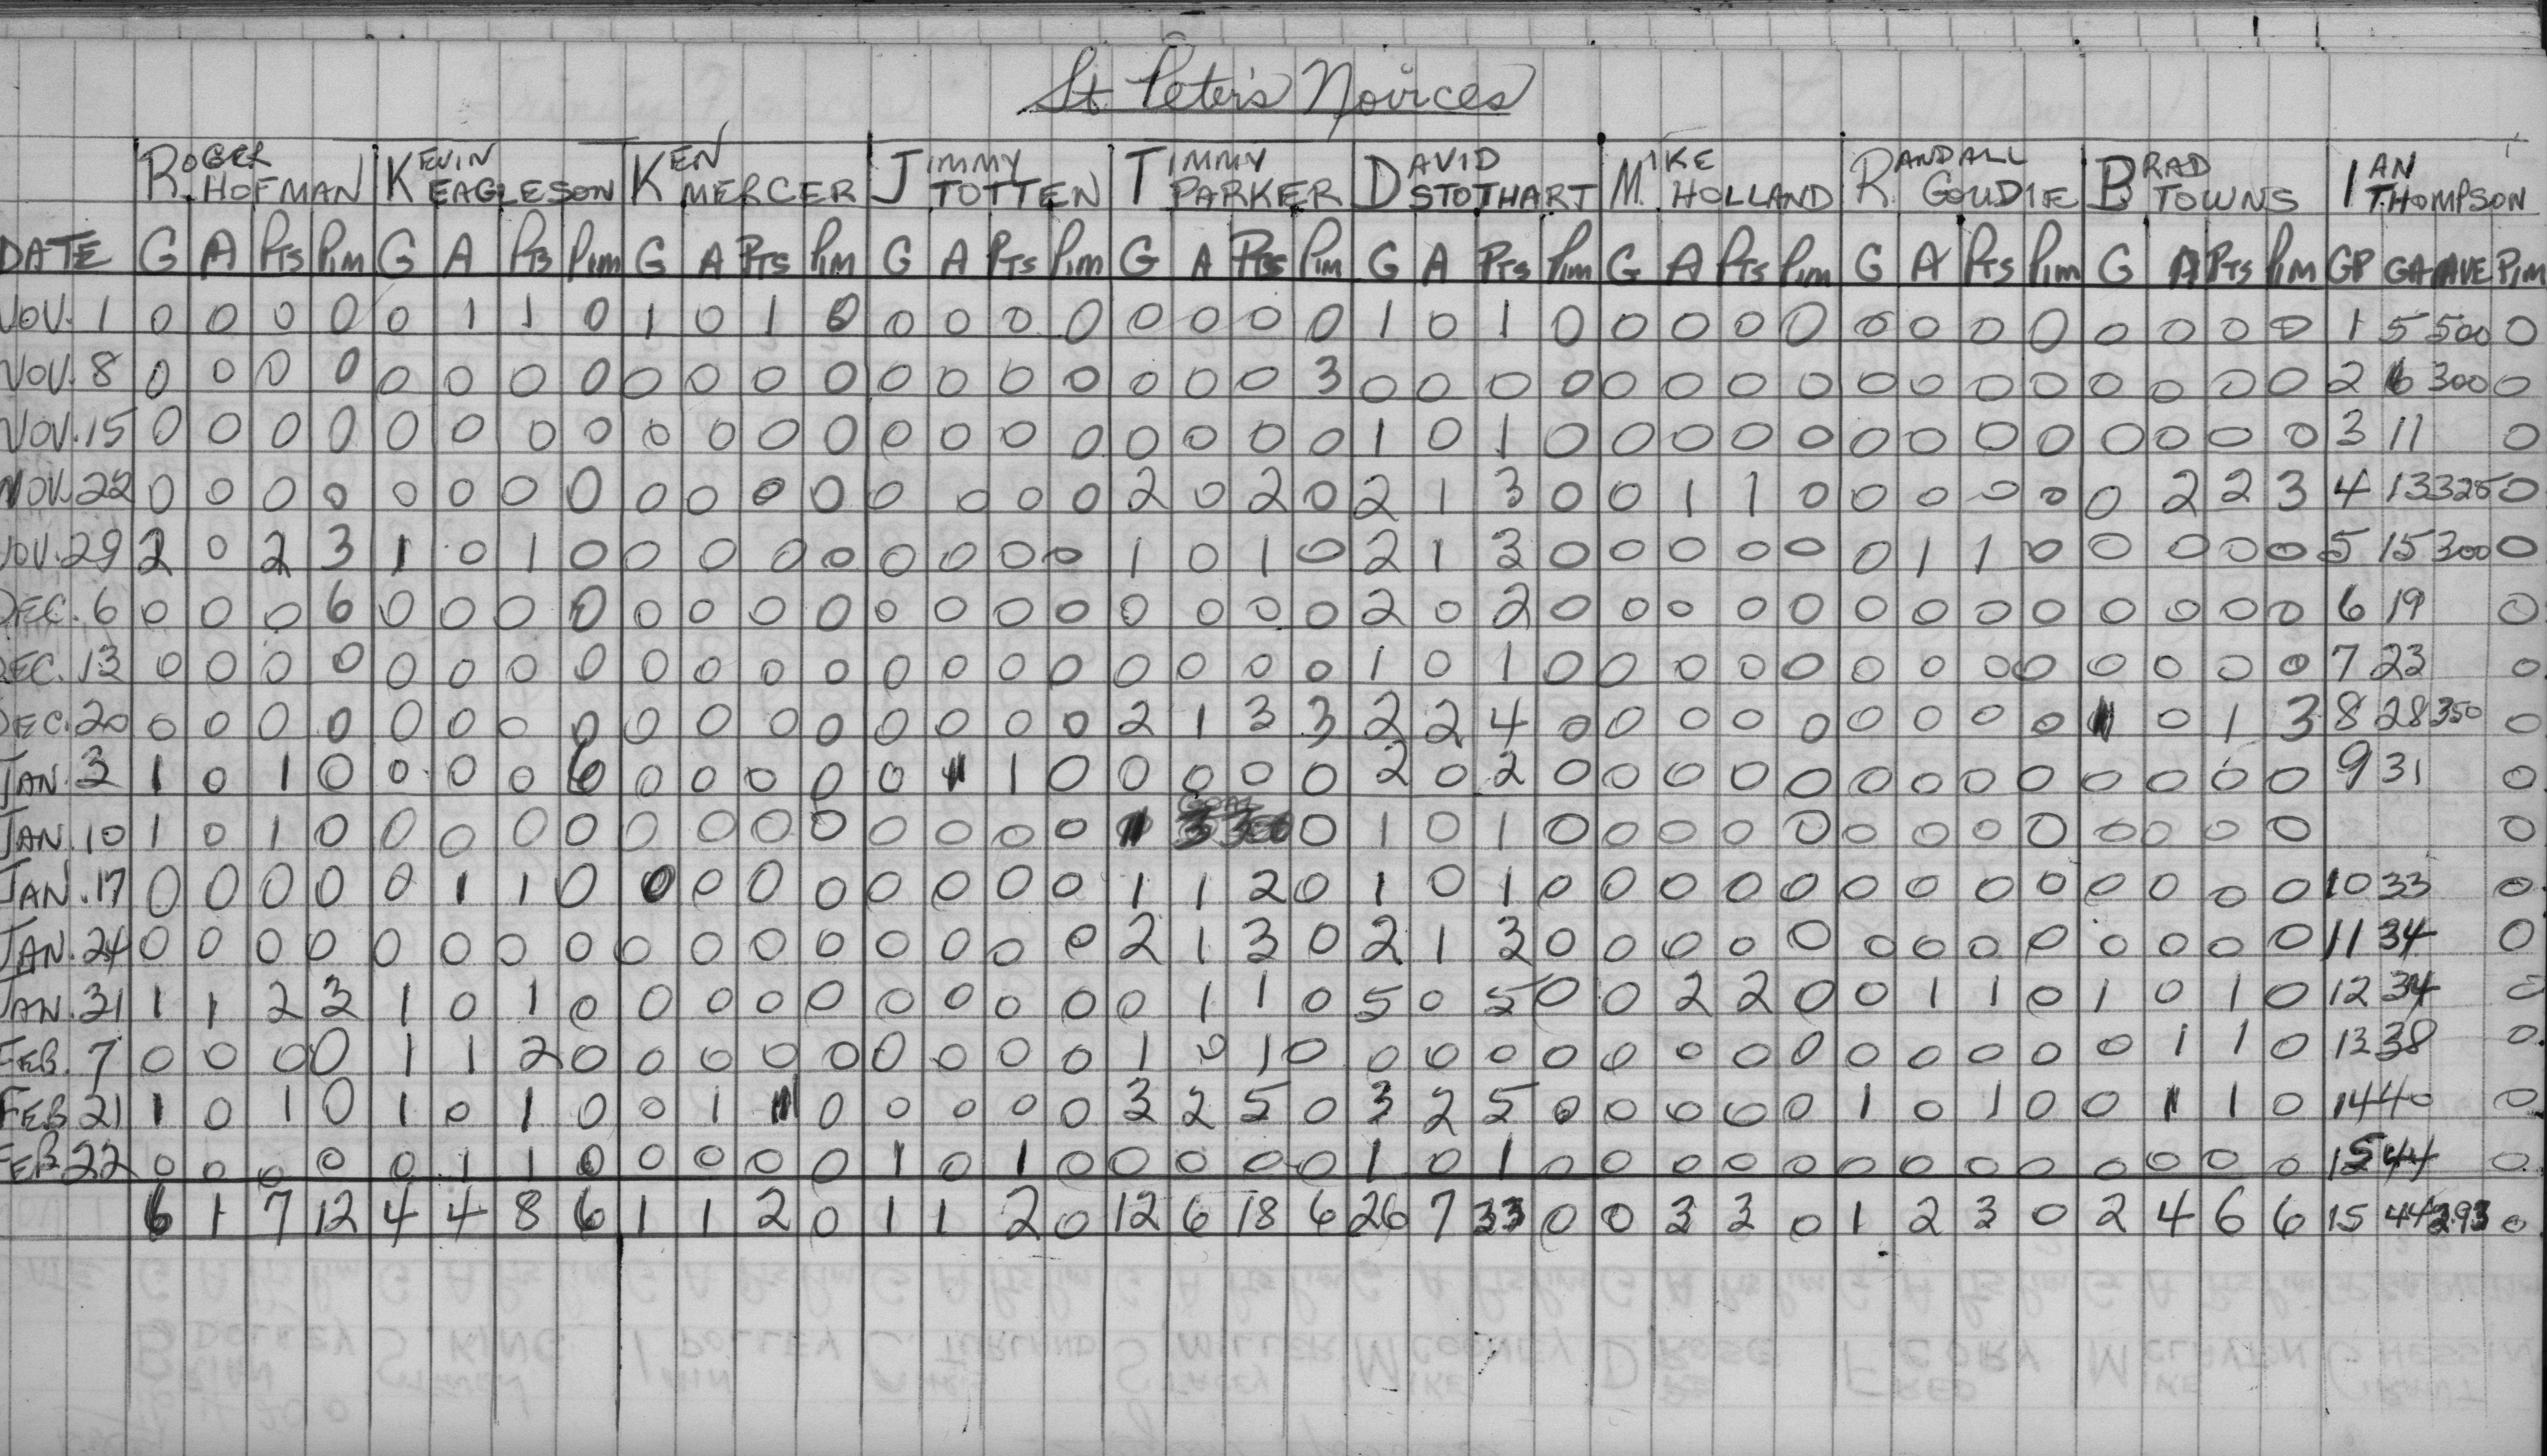 St. Peter's Novices
ROGER HOFMAN KEVIN EAGLESON KEN MERCER JIMMY TOTTEN TIMMY PARKER DAVID STOTHART MIKE HOLLAND RANDALL GOUDIE BRAD TOWNS IAN THOMPSON
DATE G A Pts Pim G A Pts Pim G A Pts Pim G A Pts Pim G A Pts Pim G A Pts Pim G A Pts Pim G A Pts Pim G A Pts Pim GP GA AVE PIM
NOV. 1 0 0 0 0 0 1 1 0 1 0 1 0 0 0 0 0 0 0 0 0 1 0 1 0 0 0 0 0 0 0 0 0 0 0 0 0 1 5 500 0
NOV. 8 0 0 0 0 0 0 0 0 0 0 0 0 0 0 0 0 0 0 0 3 0 0 0 0 0 0 0 0 0 0 0 0 0 0 0 0 2 6 300 0
NOV. 15 0 0 0 0 0 0 0 0 0 0 0 0 0 0 0 0 0 0 0 0 1 0 1 0 0 0 0 0 0 0 0 0 0 0 0 0 3 11 0
NOV. 22 0 0 0 0 0 0 0 0 0 0 0 0 0 0 0 0 2 0 2 0 2 1 3 0 0 1 1 0 0 0 0 0 0 2 2 3 4 13 325 0
NOV. 29 2 0 2 3 1 0 1 0 0 0 0 0 0 0 0 0 1 0 1 0 2 1 3 0 0 0 0 0 0 1 1 0 0 0 0 0 5 15 300 0
DEC. 6 0 0 0 6 0 0 0 0 0 0 0 0 0 0 0 0 0 0 0 0 2 0 2 0 0 0 0 0 0 0 0 0 0 0 0 0 6 19 0
DEC. 13 0 0 0 0 0 0 0 0 0 0 0 0 0 0 0 0 0 0 0 0 1 0 1 0 0 0 0 0 0 0 0 0 0 0 0 0 7 23 0
DEC. 20 0 0 0 0 0 0 0 0 0 0 0 0 0 0 0 0 2 1 3 3 2 2 4 0 0 0 0 0 0 0 0 0 1 0 1 3 8 28 350 0
JAN. 3 1 0 1 0 0 0 0 6 0 0 0 0 0 1 1 0 0 0 0 0 2 0 2 0 0 0 0 0 0 0 0 0 0 0 0 0 9 31 0
JAN. 10 1 0 1 0 0 0 0 0 0 0 0 0 0 0 0 0 1 3 300 0 1 0 1 0 0 0 0 0 0 0 0 0 0 0 0 0 0
JAN. 17 0 0 0 0 0 1 1 0 0 0 0 0 0 0 0 0 1 1 2 0 1 0 1 0 0 0 0 0 0 0 0 0 0 0 0 0 10 33 0
JAN. 24 0 0 0 0 0 0 0 0 0 0 0 0 0 0 0 0 2 1 3 0 2 1 3 0 0 0 0 0 0 0 0 0 0 0 0 0 11 34 0
JAN. 31 1 1 2 3 1 0 1 0 0 0 0 0 0 0 0 0 0 1 1 0 5 0 5 0 0 2 2 0 0 1 1 0 1 0 1 0 12 34 0
FEB. 7 0 0 0 0 1 1 2 0 0 0 0 0 0 0 0 0 1 0 1 0 0 0 0 0 0 0 0 0 0 0 0 0 0 1 1 0 13 38 0
FEB 21 1 0 1 0 1 0 1 0 0 1 1 0 0 0 0 0 3 2 5 0 3 2 5 0 0 0 0 0 1 0 1 0 0 1 1 0 14 40 0
FEB 22 0 0 0 0 0 1 1 0 0 0 0 0 1 0 1 0 0 0 0 0 1 0 1 0 0 0 0 0 0 0 0 0 0 0 0 0 15 44 0
6 1 7 12 4 4 8 6 1 1 2 0 1 1 2 0 12 6 18 6 26 7 33 0 0 3 3 0 1 2 3 0 2 4 6 6 15 44 2.93 0